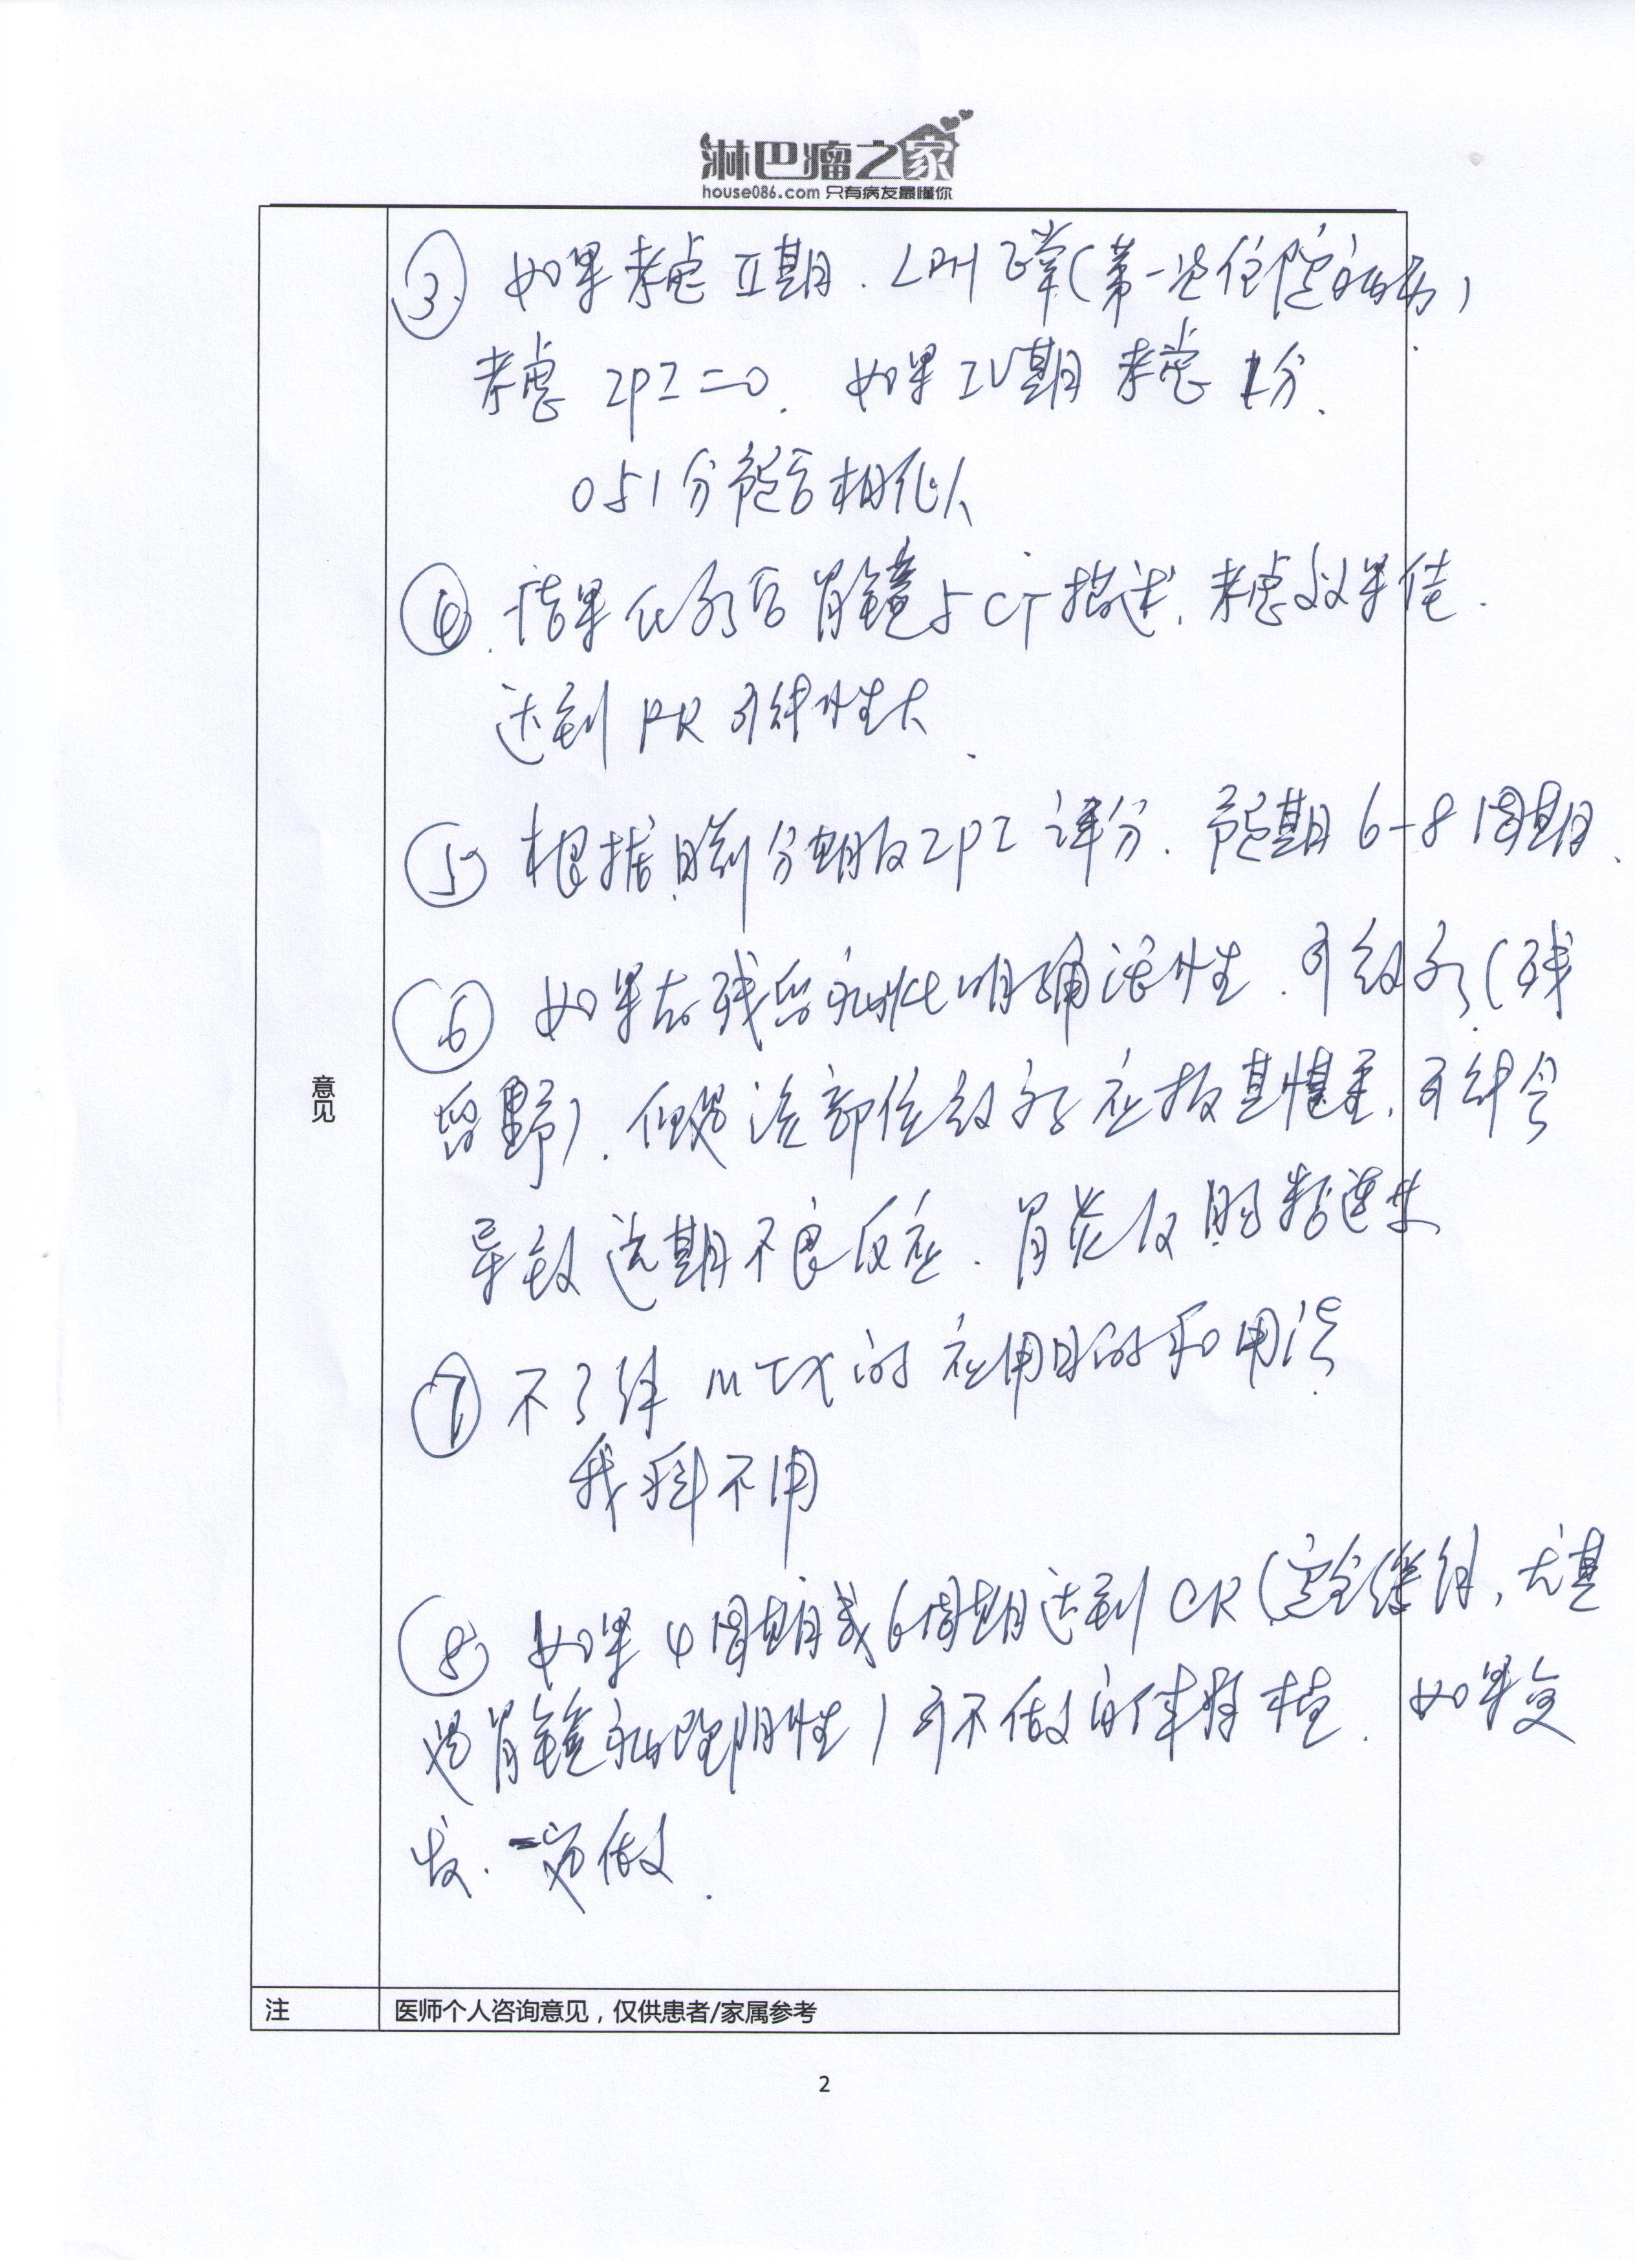 淋巴瘤之家
house086.com 只有病友最懂你
③ 如果考虑Ⅱ期. LDH正常(第一次住院病历)
考虑 IPI=0. 如果IV期考虑 1分.
0与1分预后相似
④. 结果化疗后胃镜与CT描述. 考虑效果佳.
达到 PR 可能性大.
⑤ 根据目前分期及IPI评分. 预期6-8周期.
⑥ 如果有残留病灶明确活性. 可放疗(残
留野). 但胃该部位放疗应极其慎重. 可能会
导致远期不良反应. 胃炎及肠粘连等
⑦ 不了解 MTX的应用目的和用法
我科不用
⑧ 如果4周期或6周期达到CR(完全缓解, 尤其
是胃镜病理阴性)可不做自体移植. 如果复
发. 一定做.
意见
注 医师个人咨询意见，仅供患者/家属参考
2